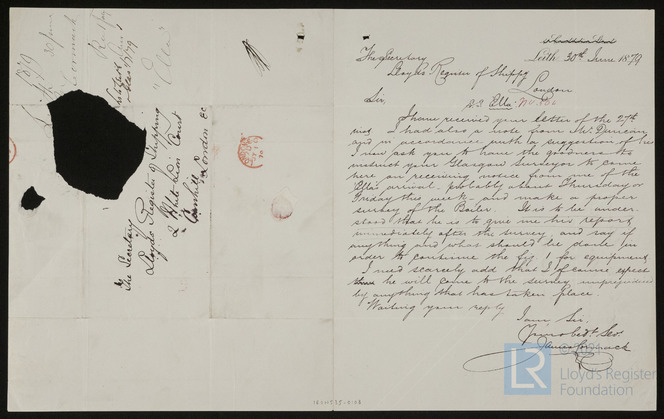 Leith 30th June 1879
The Secretary
Lloyds Register of Shippg
London
Sir,
S.S. Ella
I have received your letter of the 27th
I had also a note from Mr Duncan
and in accordance with a suggestion of
I now ask you to have the goodness to
instruct your Glasgow Surveyor to come
here on receiving notice from me of the
Ella's arrival - probably about Thursday or
Friday this week - and make a proper
survey of the Boiler. It is to be under-
stood that he is to give me his report
immediately after the survey and say if
anything and what should be done in
order to continue the fig. 1 for equipment
I need scarcely add that I of course expect
he will come to the survey unprejudiced
by anything that has taken place.
Waiting your reply
I am, Sir,
Your obedt Ser.
James Cormack
The Secretary
Lloyds Register of Shipping
2 White Lion Court
Cornhill
London EC
1879
30 June
Cormack
"Ella"
LR
© 2021
Lloyd's Register
Foundation